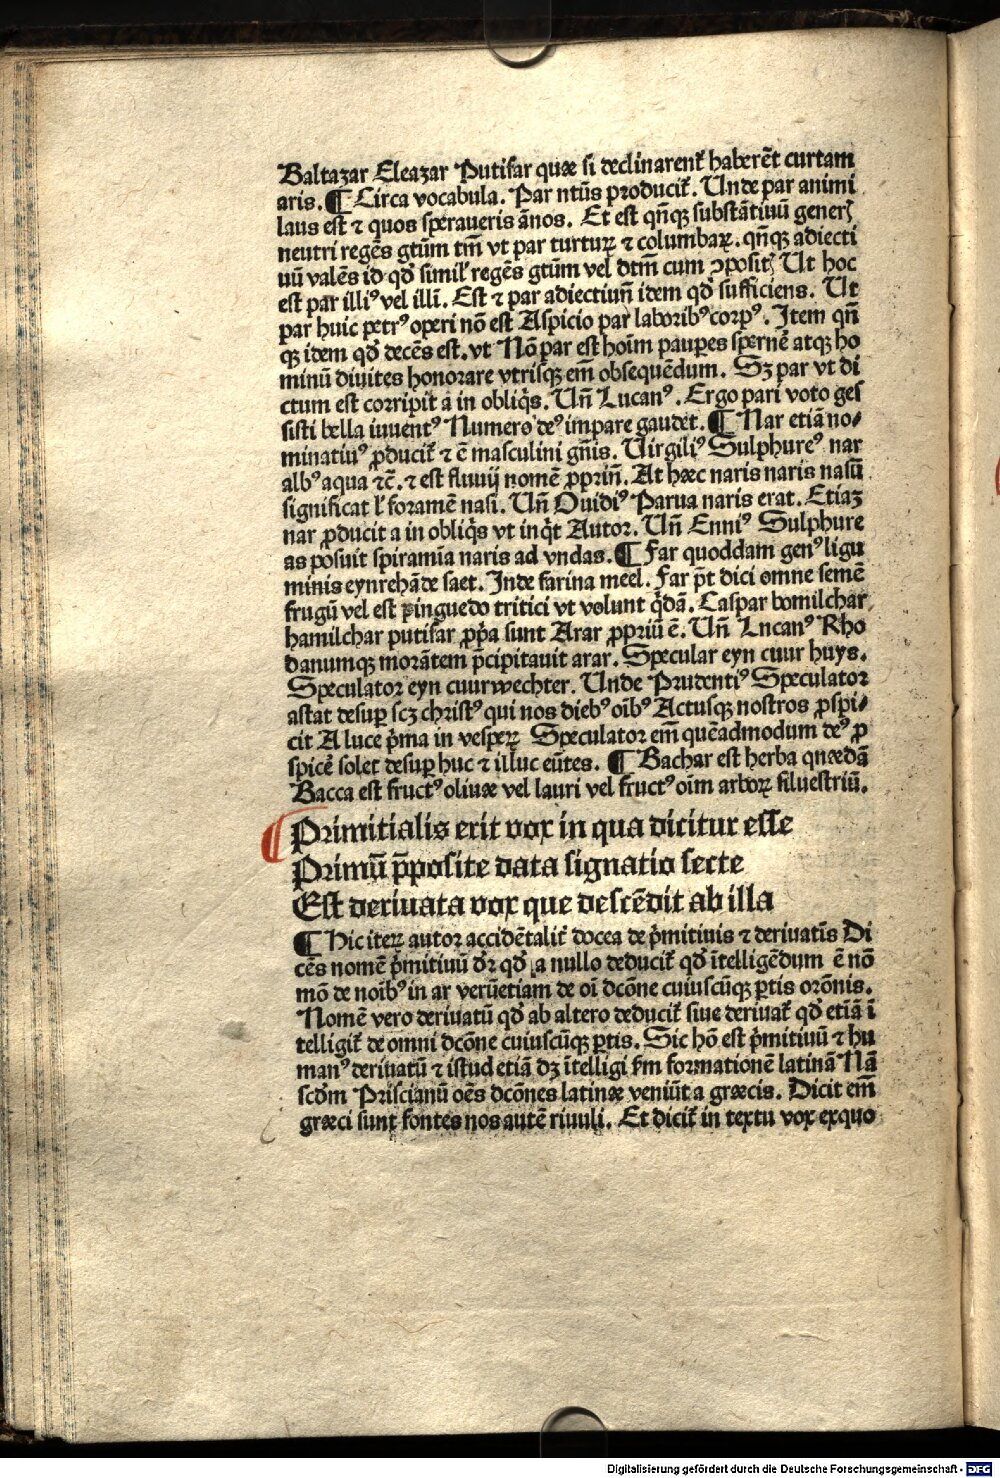 Baltazar Eleazar Putifar quæ si declinarent᷑ haberēt curtam
aris. ¶ Circa vocabula. Par ntūs producit᷑. Unde par animi
laus est ⁊ quos speraueris ānos. Et est qn̄qꝫ substātiuū generꝭ
neutri regēs gtūm tm̄ vt par turturꝝ ⁊ columbaꝝ. qn̄qꝫ adiecti
uū valēs id qđ simil̛ regēs gtūm vel dtm̄ cum ꝯpositꝭ Ut hoc
est par illiꝰ vel illi. Est ⁊ par adiectiuū idem qđ sufficiens. Ut
par huic petrꝰ operi nō est Aspicio par laboribꝰ corpꝰ. Item qn̄
qꝫ idem qđ decēs est. vt Nō par est hoīm paupes spernē atqꝫ ho
minū diuites honorare vtrisqꝫ em̄ obsequēdum. Sꝫ par vt di
ctum est corripit a in obliq̄s. Un̄ Lucanꝰ. Ergo pari voto ges
sisti bella iuuentꝰ Numero deꝰ impare gaudet. ¶ Nar etiā no-
minatiuꝰ ꝓducit᷑ ⁊ ē masculini gn̄is. Uirgiliꝰ Sulphureꝰ nar
albꝰ aqua ⁊c̄. ⁊ est fluuij nomē ꝓpriū. At hæc naris naris nasū
significat l̛ foramē nasi. Un̄ Ouidiꝰ Parua naris erat. Etiaꝫ
nar ꝓducit a in obliq̄s vt inq̄t Autor. Un̄ Enniꝰ Sulphure
as posuit spiramīa naris ad vndas. ¶ Far quoddam genꝰ ligu
minis eynrehāde saet. Inde farina meel. Far p̄t dici omne semē
frugū vel est pinguedo tritici vt volunt q̄dā. Caspar bomilchar
hamilchar putifar ꝓpa sunt Arar ꝓpriū ē. Un̄ Lncanꝰ Rho
danumqꝫ morātem p̄cipitauit arar. Specular eyn cuur huys.
Speculator eyn cuurwechter. Unde Prudentiꝰ Speculator
astat desuꝑ scꝫ christꝰ qui nos diebꝰ oībꝰ Actusqꝫ nostros ꝓspi-
cit A luce p̄ma in vesperꝝ Speculator em̄ quēadmodum deꝰ ꝓ
spicē solet desuꝑ huc ⁊ illuc eūtes. ¶ Bachar est herba quædā
Bacca est fructꝰ oliuæ vel lauri vel fructꝰ oīm arborꝝ siluestriū.
¶ Primitialis erit vox in qua dicitur esse
Primū p̄posite data signatio secte
Est deriuata vox que descēdit ab illa
¶ Hic iterꝝ autor accidētalit᷑ docea de p̄mitiuis ⁊ deriuatīs Di
cēs nomē p̄mitiuū dr̄ qđ a nullo deducit᷑ qđ ītelligēdum ē nō
mō de noībꝰ in ar verūetiam de oī dcōne cuiuscūqꝫ ꝑtis orōnis.
Nomē vero deriuatū qđ ab altero deducit᷑ siue deriuat᷑ qđ etiā ī
telligit᷑ de omni dcōne cuiuscūqꝫ ꝑtis. Sic hō est p̄mitiuū ⁊ hu
manꝰ deriuatū ⁊ istud etiā dꝫ ītelligi ẜm formationē latinā Nā
scđm Priscianū oēs dcōnes latinæ veniūt a græcis. Dicit em̄
græci sunt fontes nos autē riuuli. Et dicit᷑ in textu vox exquo
Digitalisierung gefördert durch die Deutsche Forschungsgemeinschaft - DFG